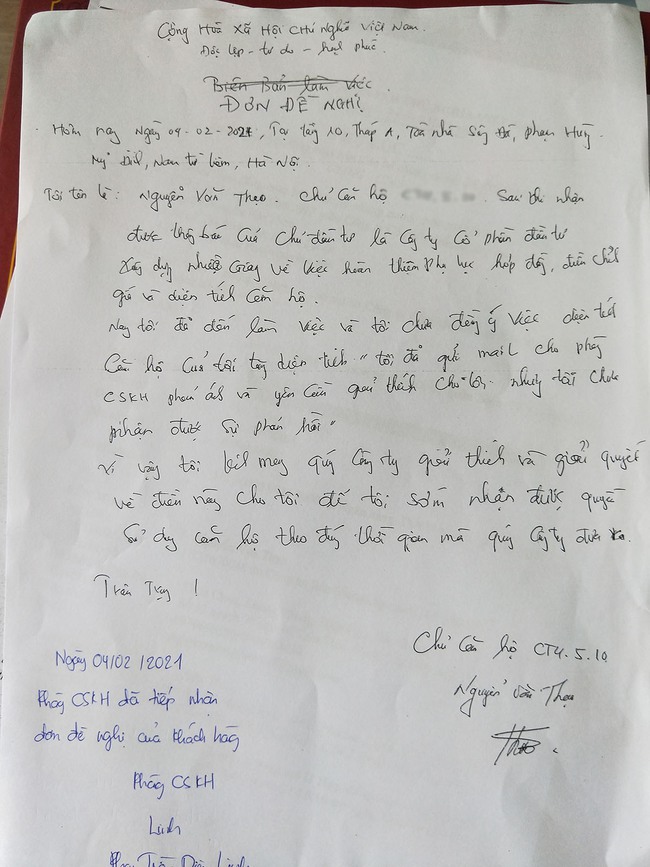 Cộng Hoà Xã Hội Chủ Nghĩa Việt Nam.
Độc lập - tự do - hạnh phúc.
Biên Bản làm việc
ĐƠN ĐỀ NGHỊ
Hôm nay Ngày 04-02-2021, Tại tầng 10, Tháp A, Toà nhà Sông Đà, Phạm Hùng.
Mỹ Đình, Nam từ liêm, Hà Nội.
Tôi tên là: Nguyễn Văn Thạo. Chủ căn hộ Sau khi nhận
được thông báo của Chủ đầu tư là Công ty Cổ phần đầu tư
Xây dựng về việc hoàn thiện phụ lục hợp đồng, điều chỉnh
giá và diện tích căn hộ.
Nay tôi đã đến làm việc và tôi chưa đồng ý việc diện tích
Căn hộ của tôi tăng diện tích " tôi đã gửi mail cho phòng
CSKH phản ánh và yêu cầu giải thích cho tôi nhưng tôi chưa
nhận được sự phản hồi"
Vì vậy tôi kính mong quý Công ty giải thích và giải quyết
về điều này cho tôi để tôi sớm nhận được quyền
Sử dụng căn hộ theo đúng thời gian mà quý Công ty đưa ra.
Trân Trọng !
Chủ Căn hộ CT4.5.10
Nguyễn Văn Thạo
Thao
Ngày 04/02/2021
Phòng CSKH đã tiếp nhận
đơn đề nghị của khách hàng
Phòng CSKH
Linh